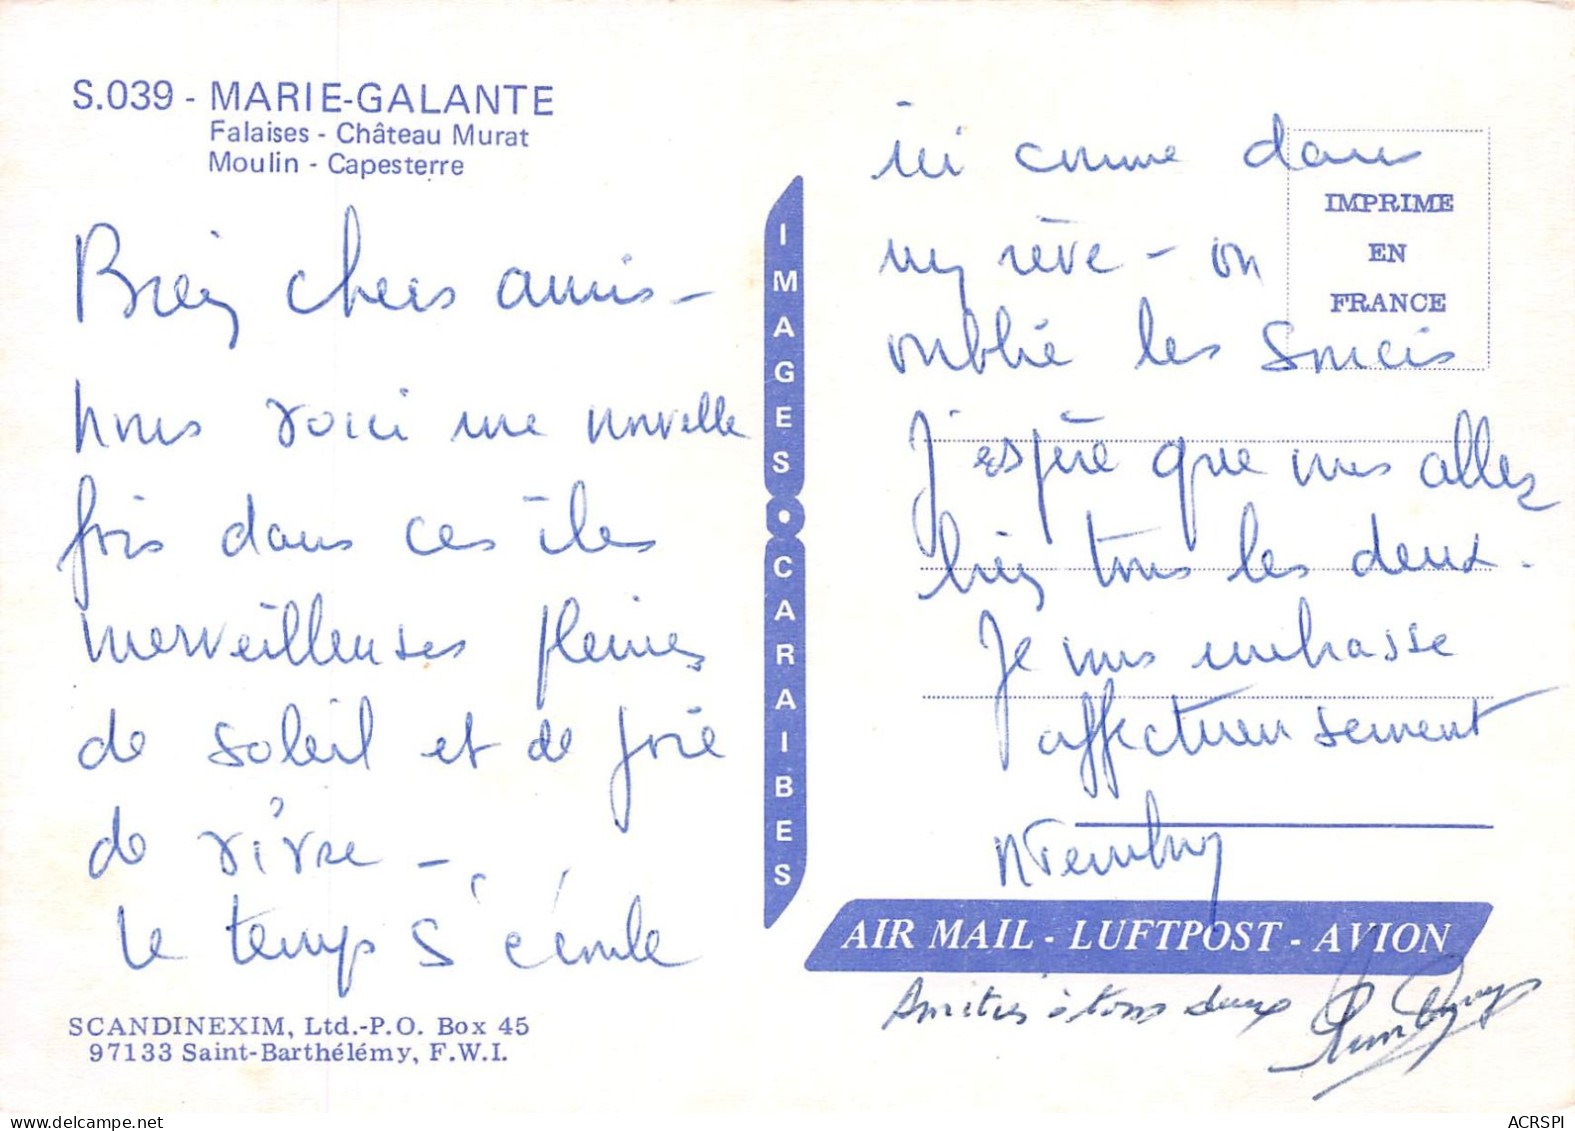 S.039 - MARIE-GALANTE
Falaises - Château Murat
Moulin - Capesterre
Bien chers amis -
nous voici une nouvelle
fois dans ces îles
merveilleuses pleines
de soleil et de joie
de vivre -
Le temps s'écoule
SCANDINEXIM, Ltd.-P.O. Box 45
97133 Saint-Barthélémy, F.W.I.
IMAGES CARAIBES
ici comme dans
un rêve - on
oublie les soucis
J'espère que vous allez
bien tous les deux.
Je vous embrasse
affectueusement
IMPRIME
EN
FRANCE
AIR MAIL - LUFTPOST - AVION
Amitiés à tous deux
ACRSPI